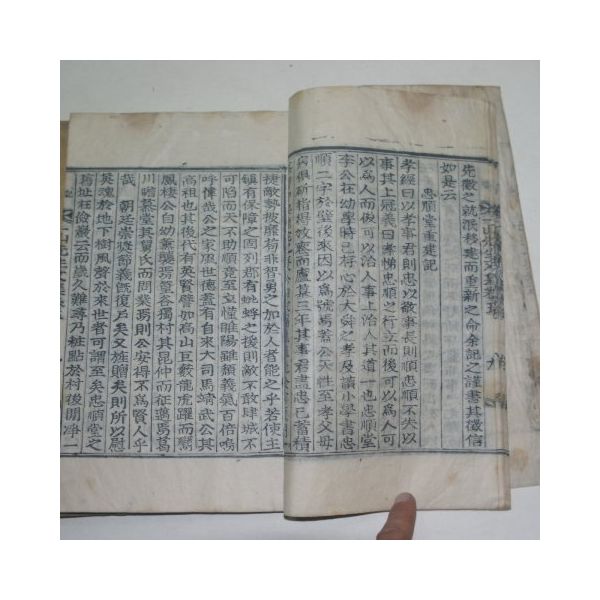 先徵之就派移建而重新之命余記之謹書其徵信
如是云
忠順堂重建記
孝經曰以孝事君則忠以敬事長則順忠順不失以
事其上冠義曰孝悌忠順之行立而後可以爲人可
以爲人而後可以治人事上治人其道一也忠順堂
李公在幼學時已存心於大舜之孝及讀小學書忠
順二字於壁後來因以爲號焉蓋公天性至孝父母
病俱新指得效居而廬墓三年其事君盡忠已蓄積
捷敵勢披靡苟非智勇之加於人者能之乎若使主
鎮有保障之固列郡有蚍蜉之援則敵不敢肆城不
可陷而天不順竟至立慬睢陽雖顏義氣百倍嗚
呼偉哉公之家風世德蓋有自來大司馬靖武公其
高祖也其後代有英賢譬如高山巨藪龍虎躍而鸞
鳳棲公自幼薰襲焉萱谷獨村其昆仲而征邁葛
川瞻慕堂其舅氏而問業焉則公安得不爲賢人乎
哉 朝廷崇獎節義旣復戶矣又旌贈矣則所以慰
英魂於地下樹風聲於來世者可謂至矣忠順堂之
舊址在儉巖云而歲久難尋乃粧點於村後閒淨一